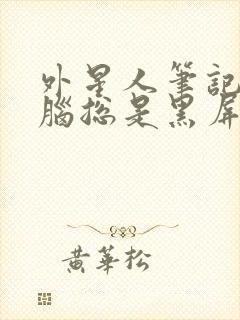 外星人筆記
腦總是黑屏
黃華松